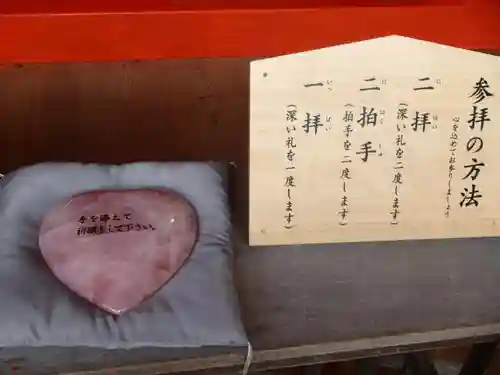 参拝の方法
心を込めてお参りしましょう
二拝
にはい
(深い礼を二度します)
二拍手
にはくしゅ
(拍手を二度します)
一拝
いっぱい
(深い礼を一度します)
手を添えて
祈願をして下さい。